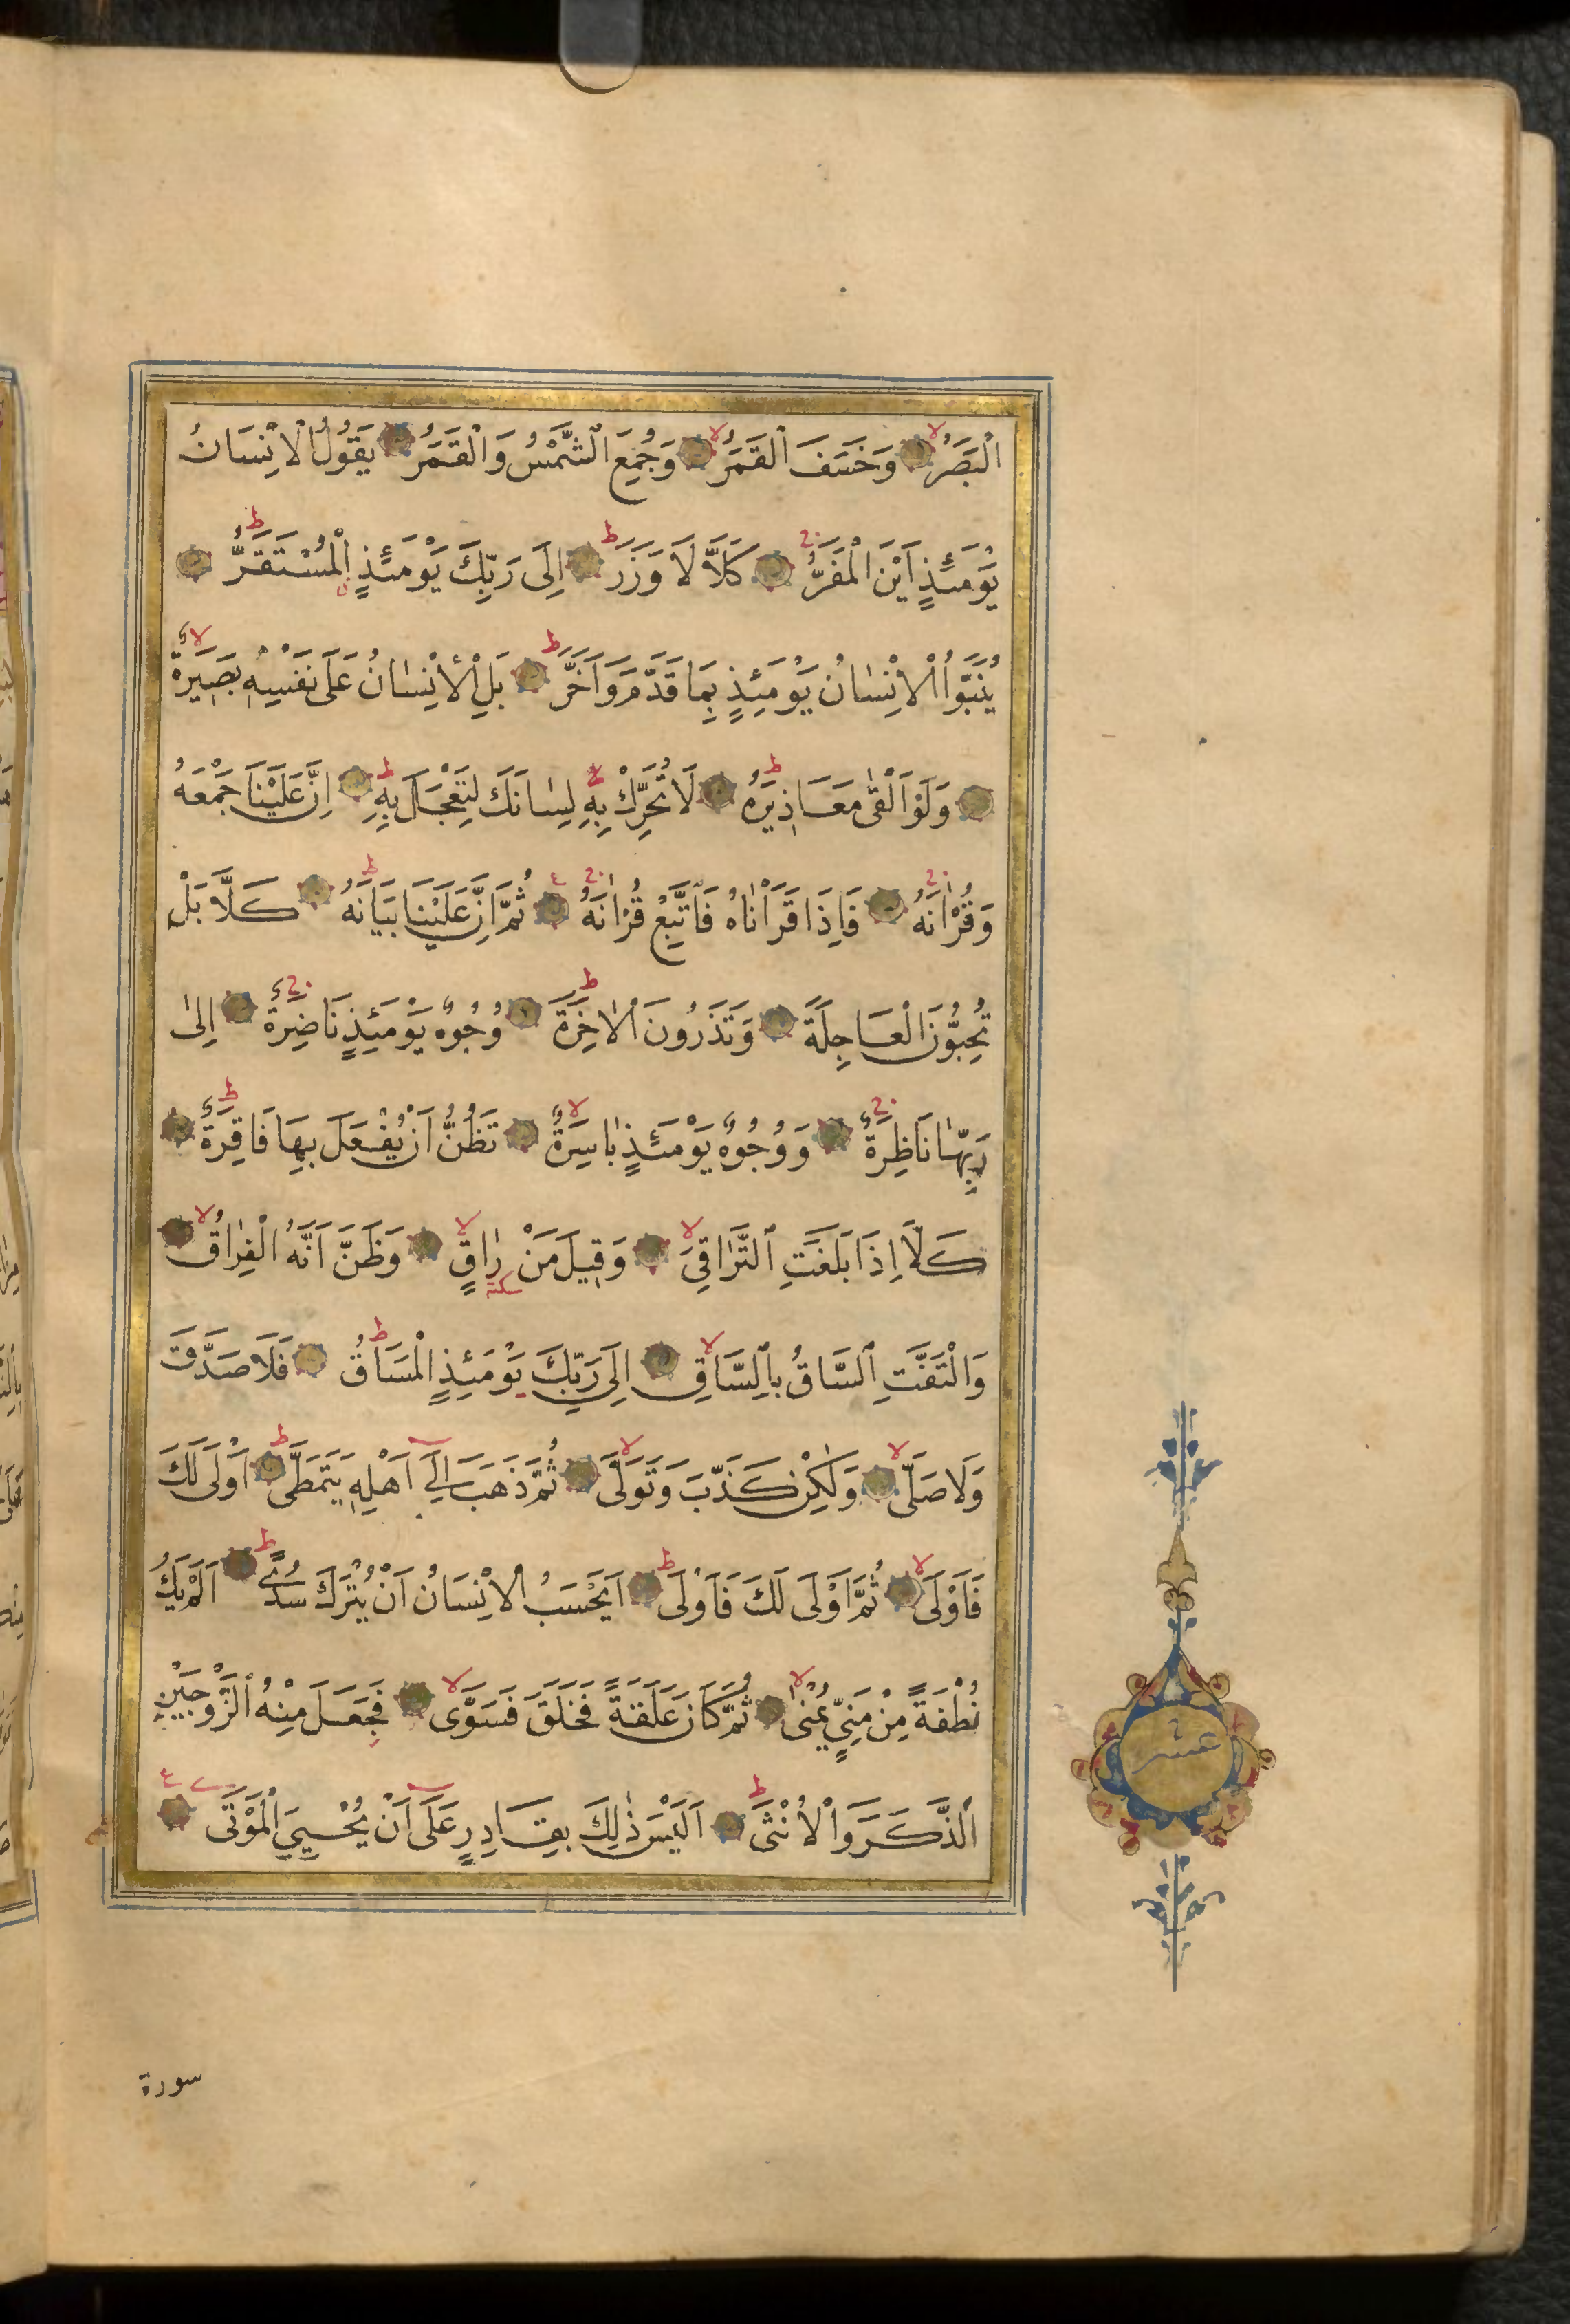 الْبَصَرُ وَخَسَفَ الْقَمَرُ وَجُمِعَ الشَّمْسُ وَالْقَمَرُ يَقُولُ الْاِنْسَانُ
يَوْمَئِذٍ اَيْنَ الْمَفَرُّ كَلَّا لَا وَزَرَ اِلَى رَبِّكَ يَوْمَئِذٍ الْمُسْتَقَرُّ
يُنَبَّؤُا الْاِنْسَانُ يَوْمَئِذٍ بِمَا قَدَّمَ وَاَخَّرَ بَلِ الْاِنْسَانُ عَلَى نَفْسِهِ بَصِيرَةٌ
وَلَوْ اَلْقٰى مَعَاذِيرَهُ لَا تُحَرِّكْ بِهِ لِسَانَكَ لِتَعْجَلَ بِهِ اِنَّ عَلَيْنَا جَمْعَهُ
وَقُرْاٰنَهُ فَاِذَا قَرَأْنَاهُ فَاتَّبِعْ قُرْاٰنَهُ ثُمَّ اِنَّ عَلَيْنَا بَيَانَهُ كَلَّا بَلْ
تُحِبُّونَ الْعَاجِلَةَ وَتَذَرُونَ الْاٰخِرَةَ وُجُوهٌ يَوْمَئِذٍ نَاضِرَةٌ اِلٰى
رَبِّهَا نَاظِرَةٌ وَوُجُوهٌ يَوْمَئِذٍ بَاسِرَةٌ تَظُنُّ اَنْ يُفْعَلَ بِهَا فَاقِرَةٌ
كَلَّا اِذَا بَلَغَتِ التَّرَاقِيَ وَقِيلَ مَنْ رَاقٍ سكته وَظَنَّ اَنَّهُ الْفِرَاقُ
وَالْتَفَّتِ السَّاقُ بِالسَّاقِ اِلَى رَبِّكَ يَوْمَئِذٍ الْمَسَاقُ فَلَا صَدَّقَ
وَلَا صَلَّى وَلٰكِنْ كَذَّبَ وَتَوَلَّى ثُمَّ ذَهَبَ اِلَى اَهْلِهِ يَتَمَطَّى اَوْلَى لَكَ
فَاَوْلَى ثُمَّ اَوْلَى لَكَ فَاَوْلَى اَيَحْسَبُ الْاِنْسَانُ اَنْ يُتْرَكَ سُدًى اَلَمْ يَكُ
نُطْفَةً مِنْ مَنِيٍّ يُمْنٰى ثُمَّ كَانَ عَلَقَةً فَخَلَقَ فَسَوَّى فَجَعَلَ مِنْهُ الزَّوْجَيْنِ
الذَّكَرَ وَالْاُنْثَى اَلَيْسَ ذٰلِكَ بِقَادِرٍ عَلَى اَنْ يُحْيِيَ الْمَوْتَى
عشر
سورة